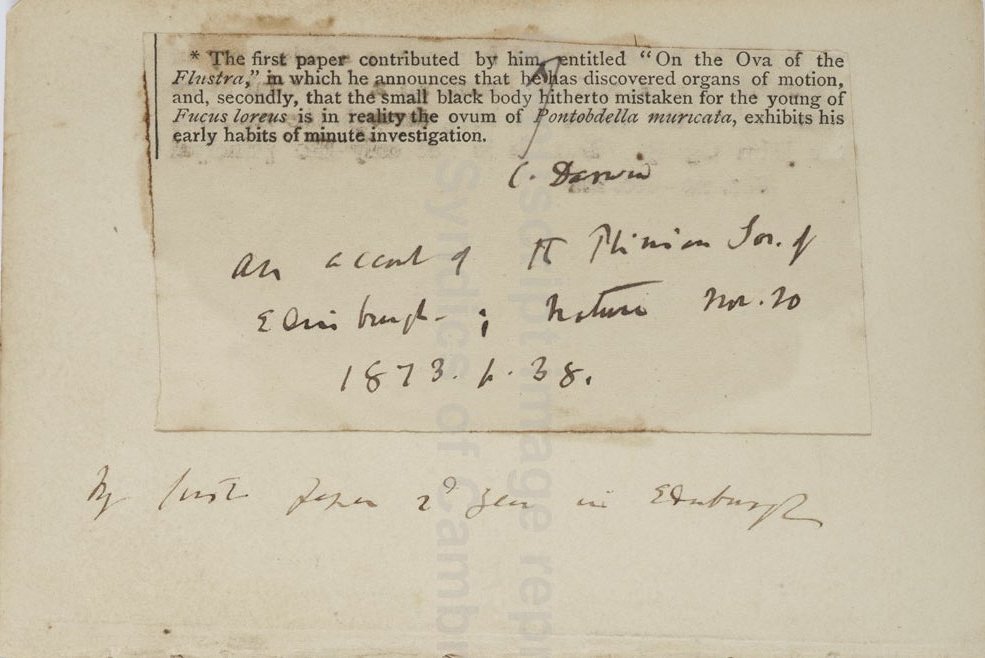 * The first paper contributed by him, entitled "On the Ova of the
Flustra," in which he announces that he has discovered organs of motion,
and, secondly, that the small black body hitherto mistaken for the young of
Fucus loreus is in reality the ovum of Pontobdella muricata, exhibits his
early habits of minute investigation.
C. Darwin
An account of Plinian Soc. of
Edinburgh ; Nature Nov. 20
1873. p. 38.
My first paper 2d year in Edinburgh
Syndics of Camb